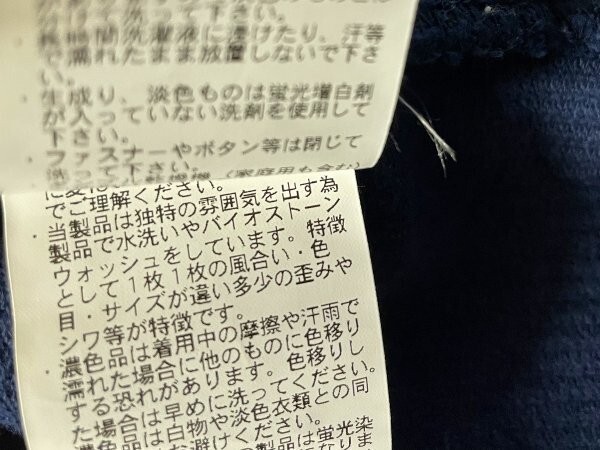 分けて洗って下さい。
長時間洗濯液に浸けたり、汗等
で濡れたまま放置しないで下さ
い。
生成り、淡色ものは蛍光増白剤
が入っていない洗剤を使用して
下さい。
・ファスナーやボタン等は閉じて
洗って下さい。
(家庭用も含む)
でご理解ください。
当製品は独特の雰囲気を出す為
製品で水洗いやバイオストーン
ウォッシュをしています。特徴
として1枚1枚の風合い・色
目・サイズが違い多少の歪みや
シワ等が特徴です。
・濃色品は着用中の摩擦や汗雨で
濡れた場合に他のものに色移り
する恐れがあります。色移りし
た場合は早めに洗ってください。
濃色品は白物や淡色衣類との同
お避けください。
の製品は蛍光染